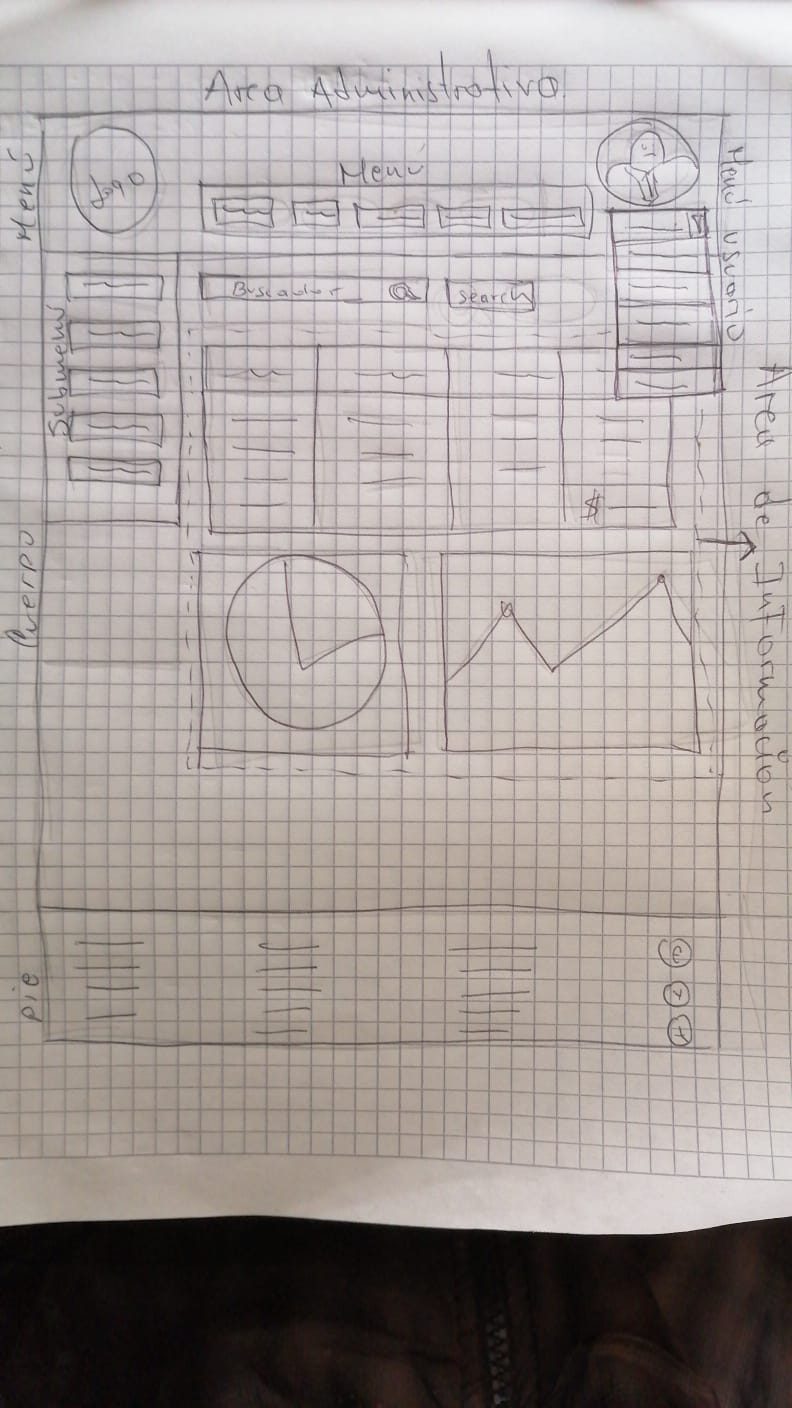 Area Administrativa.
Menú
Logo
Menú
Menú usuario
Submenú
Buscador
Search
Area de Información
$
Cuerpo
pie